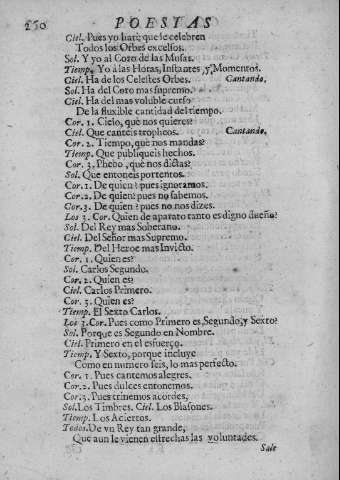 250 POESIAS
Ciel. Pues yo harè que le celebren
Todos los Orbes excelsos.
Sol. Y yo al Coro de las Musas.
Tiemp. Yo á las Horas, Instantes, y Momentos.
Ciel. Ha de los Celestes Orbes. Cantando.
Sol. Ha del Coro mas supremo.
Ciel. Ha del mas voluble curso
De la fluxible cantidad del tiempo.
Cor. 1. Cielo, que nos quieres?
Ciel. Que canteis tropheos. Cantando.
Cor. 2. Tiempo, què nos mandas?
Tiemp. Que publiqueis hechos.
Cor. 3. Phebo, què nos dictas?
Sol. Que entoneis portentos.
Cor. 1. De quien? pues ignoramos.
Cor. 2. De quien? pues no sabemos.
Cor. 3. De quien? pues no nos dizes.
Los 3. Cor. Quien de aparato tanto es digno dueño?
Sol. Del Rey mas Soberano.
Ciel. Del Señor mas Supremo.
Tiemp. Del Heroe mas Invicto.
Cor. 1. Quien es?
Sol. Carlos Segundo.
Cor. 2. Quien es?
Ciel. Carlos Primero.
Cor. 3. Quien es?
Tiemp. El Sexto Carlos.
Los 3. Cor. Pues como Primero es, Segundo, y Sexto?
Sol. Porque es Segundo en Nombre.
Ciel. Primero en el esfuerço.
Tiemp. Y Sexto, porque incluye
Como en numero seis, lo mas perfecto.
Cor. 1. Pues cantemos alegres.
Cor. 2. Pues dulces entonemos.
Cor. 3. Pues trinemos acordes,
Sol. Los Timbres. Ciel. Los Blasones.
Tiemp. Los Aciertos.
Todos. De vn Rey tan grande,
Que aun le vienen estrechas las voluntades.
Sale